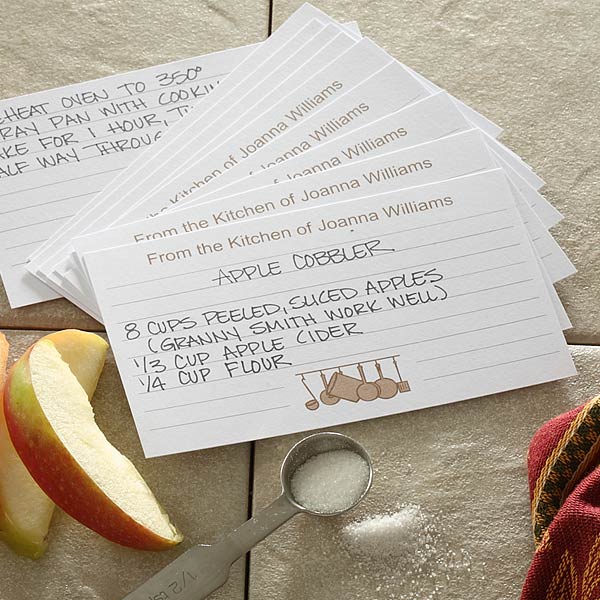 HEAT OVEN TO 350°
PAN WITH
FOR 1 HOUR,
HALF WAY
Kitchen of Joanna Williams
the Kitchen of Joanna Williams
From the Kitchen of Joanna Williams
From the Kitchen of Joanna Williams
APPLE COBBLER
8 CUPS PEELED, SLICED APPLES
(GRANNY SMITH WORK WELL)
1/3 CUP APPLE CIDER
1/4 CUP FLOUR
1/2